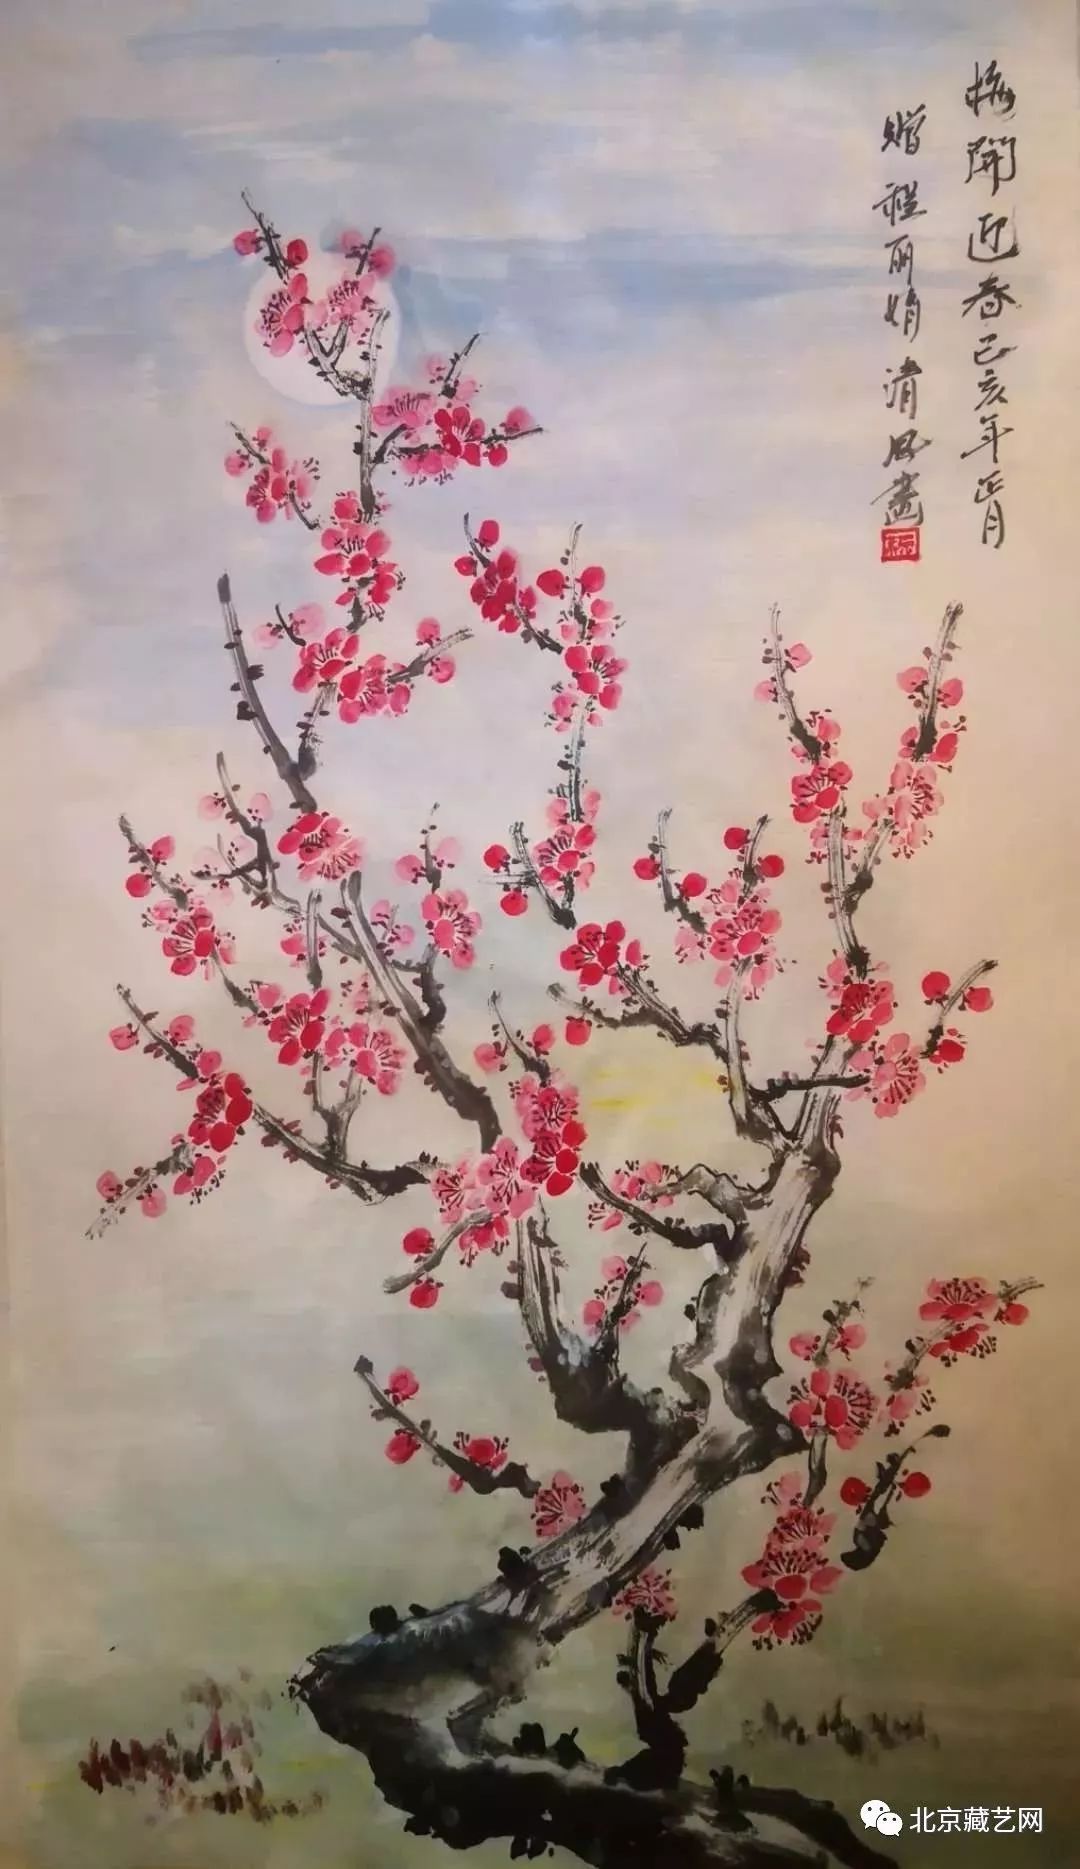 梅開迎春己亥年正月
赠程丽娟清风畫
北京藏艺网